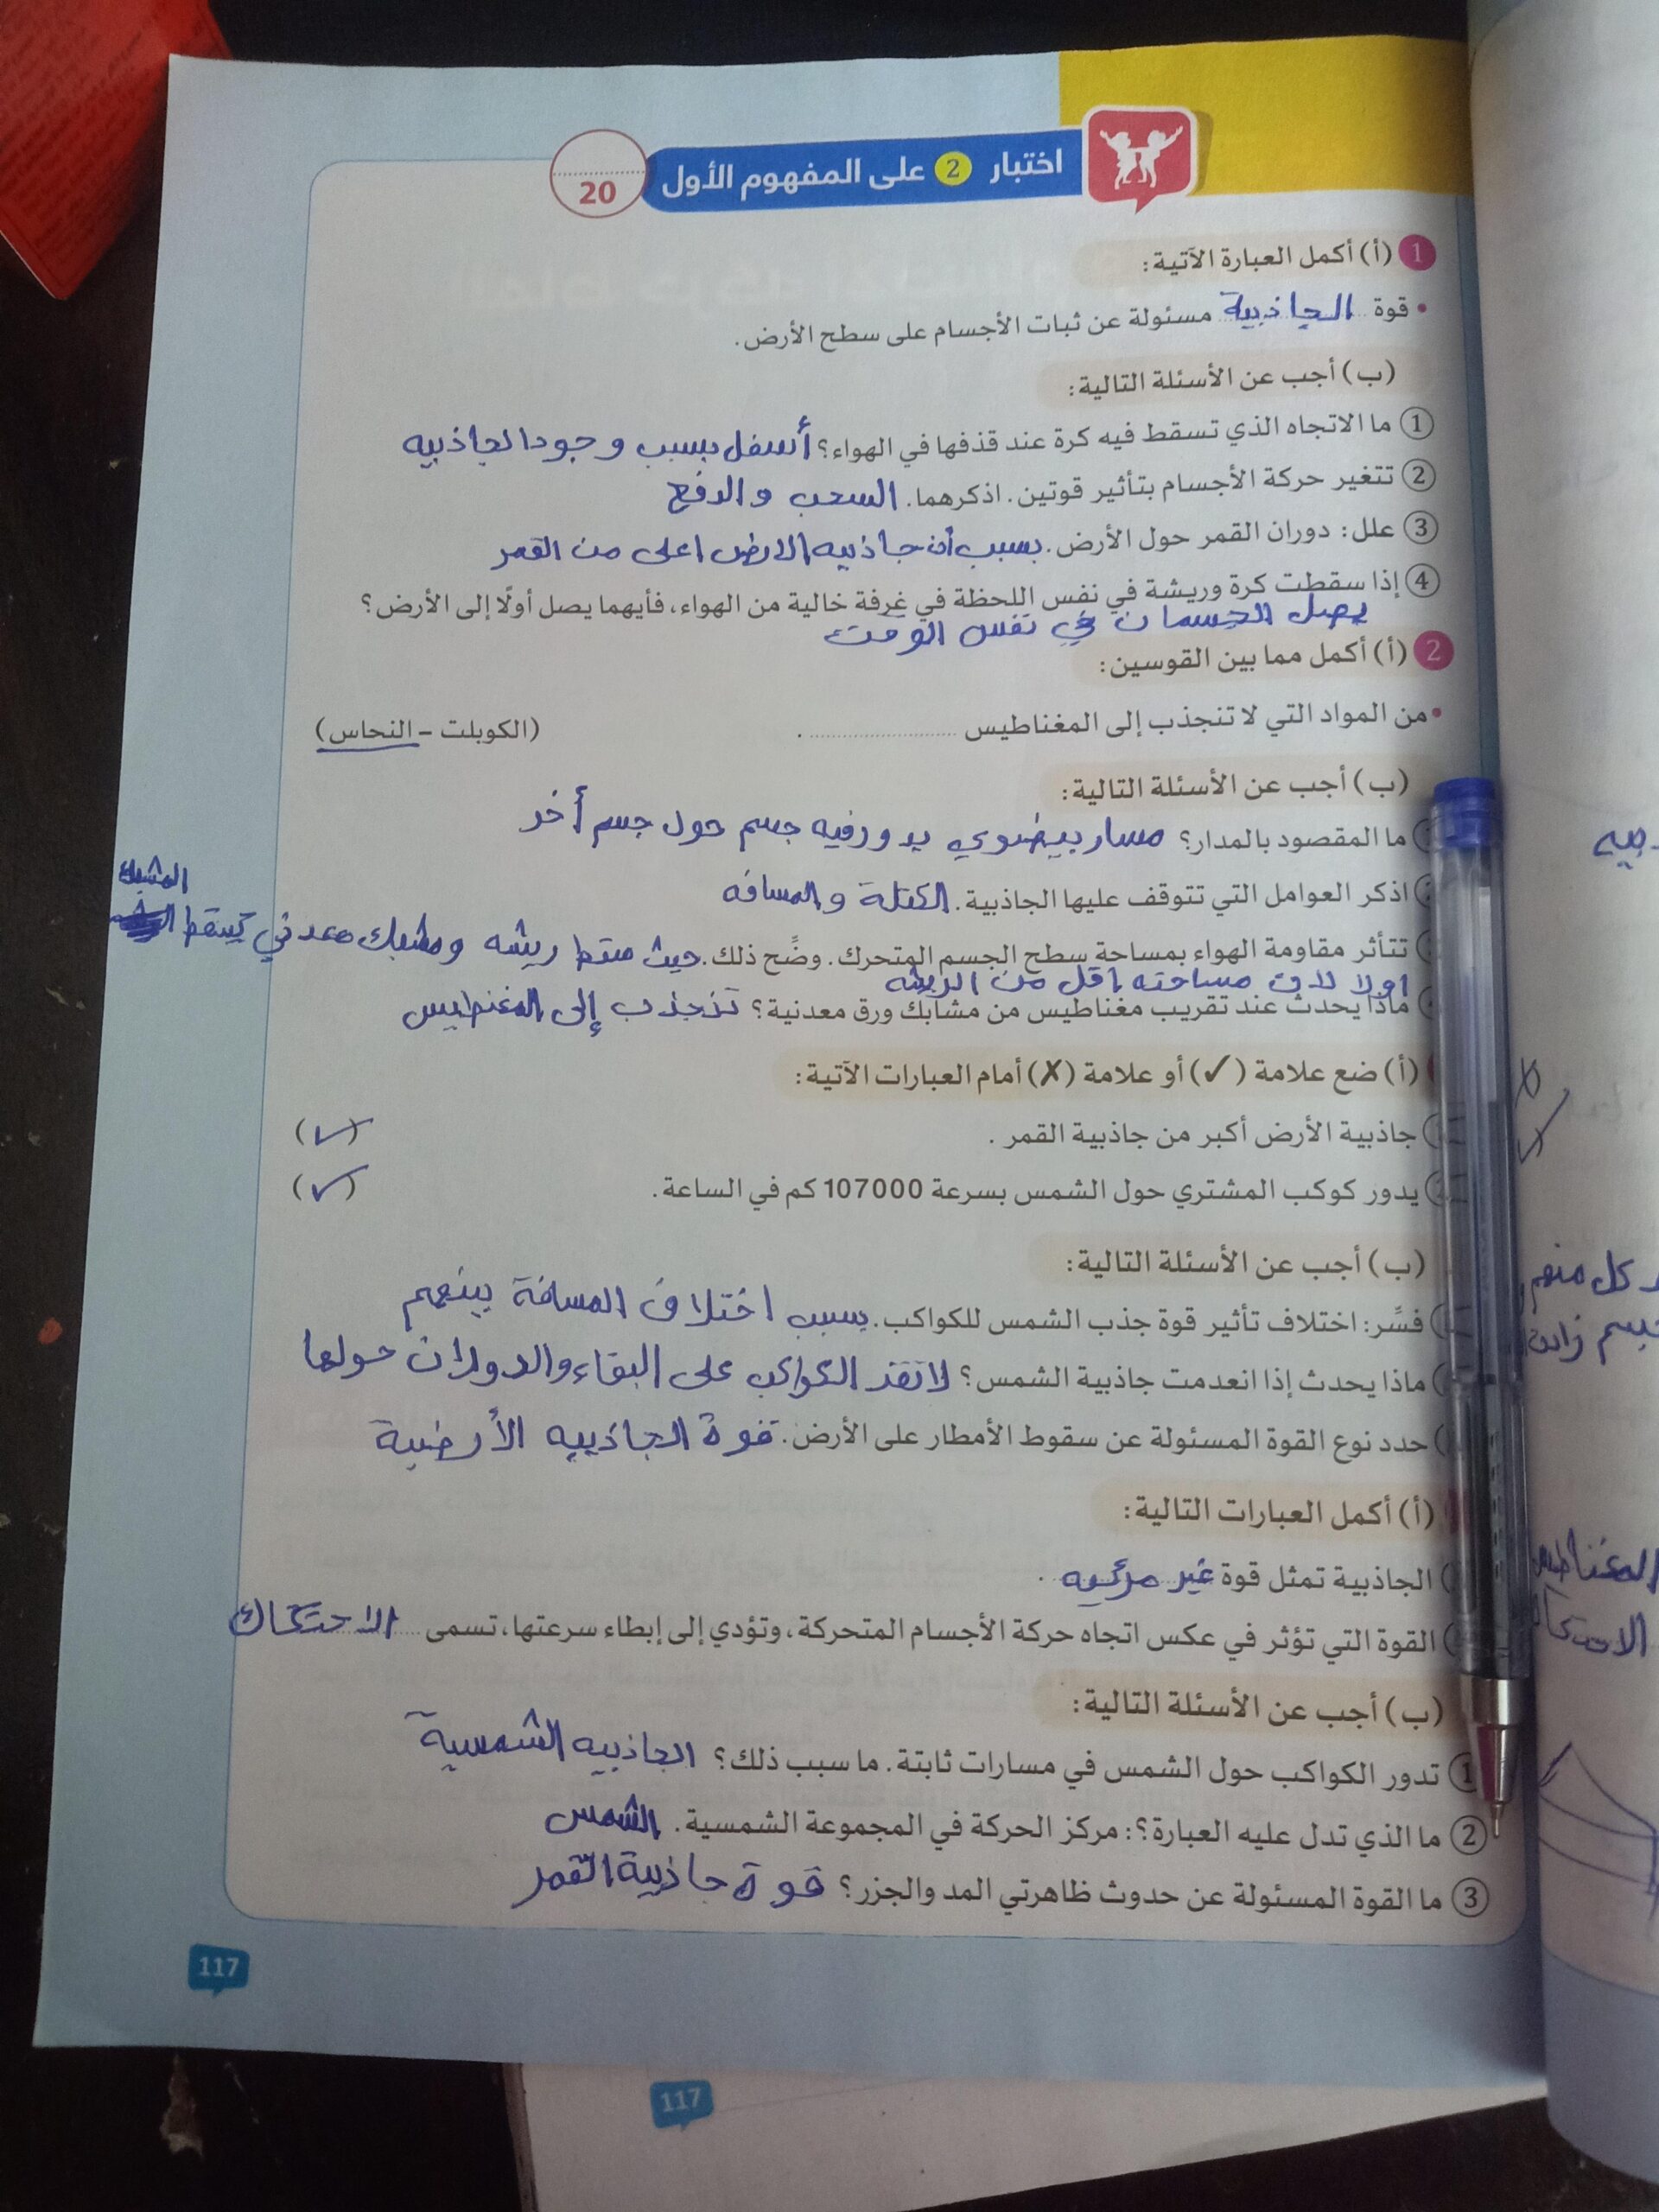 اختبار 2 على المفهوم الأول
20
1 (أ) أكمل العبارة الآتية:
• قوة الجاذبية مسئولة عن ثبات الأجسام على سطح الأرض.
(ب) أجب عن الأسئلة التالية:
1 ما الاتجاه الذي تسقط فيه كرة عند قذفها في الهواء؟ أسفل بسبب وجود الجاذبيه
2 تتغير حركة الأجسام بتأثير قوتين. اذكرهما. السحب والدفع
3 علل: دوران القمر حول الأرض. بسبب أن جاذبيه الارض اعلى من القمر
4 إذا سقطت كرة وريشة في نفس اللحظة في غرفة خالية من الهواء، فأيهما يصل أولًا إلى الأرض؟
يصل الجسمان في نفس الوقت
2 (أ) أكمل مما بين القوسين:
• من المواد التي لا تنجذب إلى المغناطيس .................... . (الكوبلت - النحاس)
(ب) أجب عن الأسئلة التالية:
ما المقصود بالمدار؟ مسار بيضوي يدور فيه جسم حول جسم أخر
اذكر العوامل التي تتوقف عليها الجاذبية. الكتلة والمسافه
المشبك
تتأثر مقاومة الهواء بمساحة سطح الجسم المتحرك. وضِّح ذلك. حيث سقط ريشه ومشبك معدني يسقط
اولا لان مساحته اقل من الريشه
ماذا يحدث عند تقريب مغناطيس من مشابك ورق معدنية؟ تنجذب إلى المغنطيس
(أ) ضع علامة (✓) أو علامة (✗) أمام العبارات الآتية:
جاذبية الأرض أكبر من جاذبية القمر. (✓)
يدور كوكب المشتري حول الشمس بسرعة 107000 كم في الساعة. (✓)
(ب) أجب عن الأسئلة التالية:
فسِّر: اختلاف تأثير قوة جذب الشمس للكواكب. بسبب اختلاف المسافة بينهم
ماذا يحدث إذا انعدمت جاذبية الشمس؟ لا تقدر الكواكب على البقاء والدوران حولها
حدد نوع القوة المسئولة عن سقوط الأمطار على الأرض. قوة الجاذبيه الأرضية
(أ) أكمل العبارات التالية:
الجاذبية تمثل قوة غير مرئيه .
القوة التي تؤثر في عكس اتجاه حركة الأجسام المتحركة، وتؤدي إلى إبطاء سرعتها، تسمى الاحتكاك
(ب) أجب عن الأسئلة التالية:
1 تدور الكواكب حول الشمس في مسارات ثابتة. ما سبب ذلك؟ الجاذبيه الشمسية
2 ما الذي تدل عليه العبارة؟: مركز الحركة في المجموعة الشمسية. الشمس
3 ما القوة المسئولة عن حدوث ظاهرتي المد والجزر؟ قوة جاذبية القمر
117
117
كل منهم